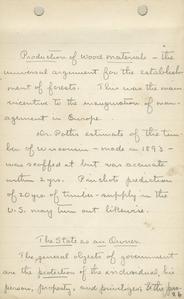 Production of Wood Materials - the
universal argument for the establish-
ment of forests. This was the main
incentive to the inauguration of man-
agement in Europe.
Dr. Roth's estimate of the tim-
ber of Wisconsin - made in 1893 -
was scoffed at but was accurate
within 2 yrs. Pinchot's prediction
of 20 yrs of timber-supply in the
U.S. may turn out likewise.
The State as an Owner.
The general objects of government
are the protection of the individual, his
person, property, and privileges; to the